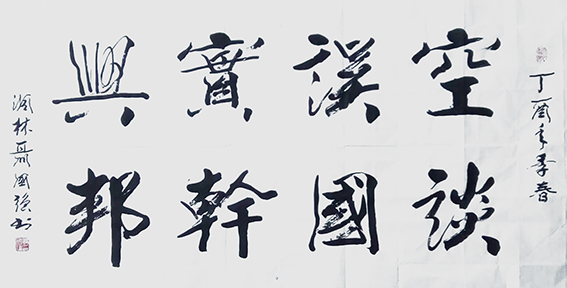 丁酉年季春
空談
誤國
實幹
興邦
林聶國強書